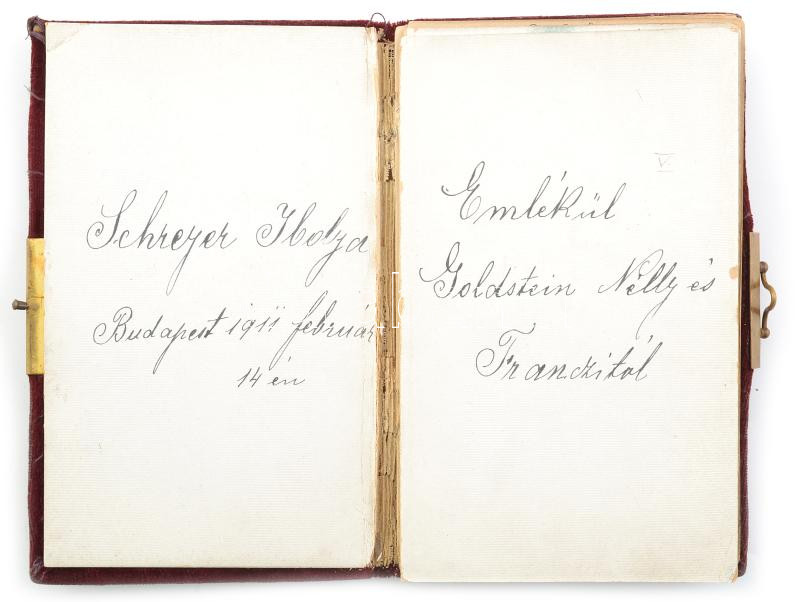 Schreyer Ibolya
Budapest 1911 február
14 én
V.
Emlékül
Goldstein Nelly és
Franczitól